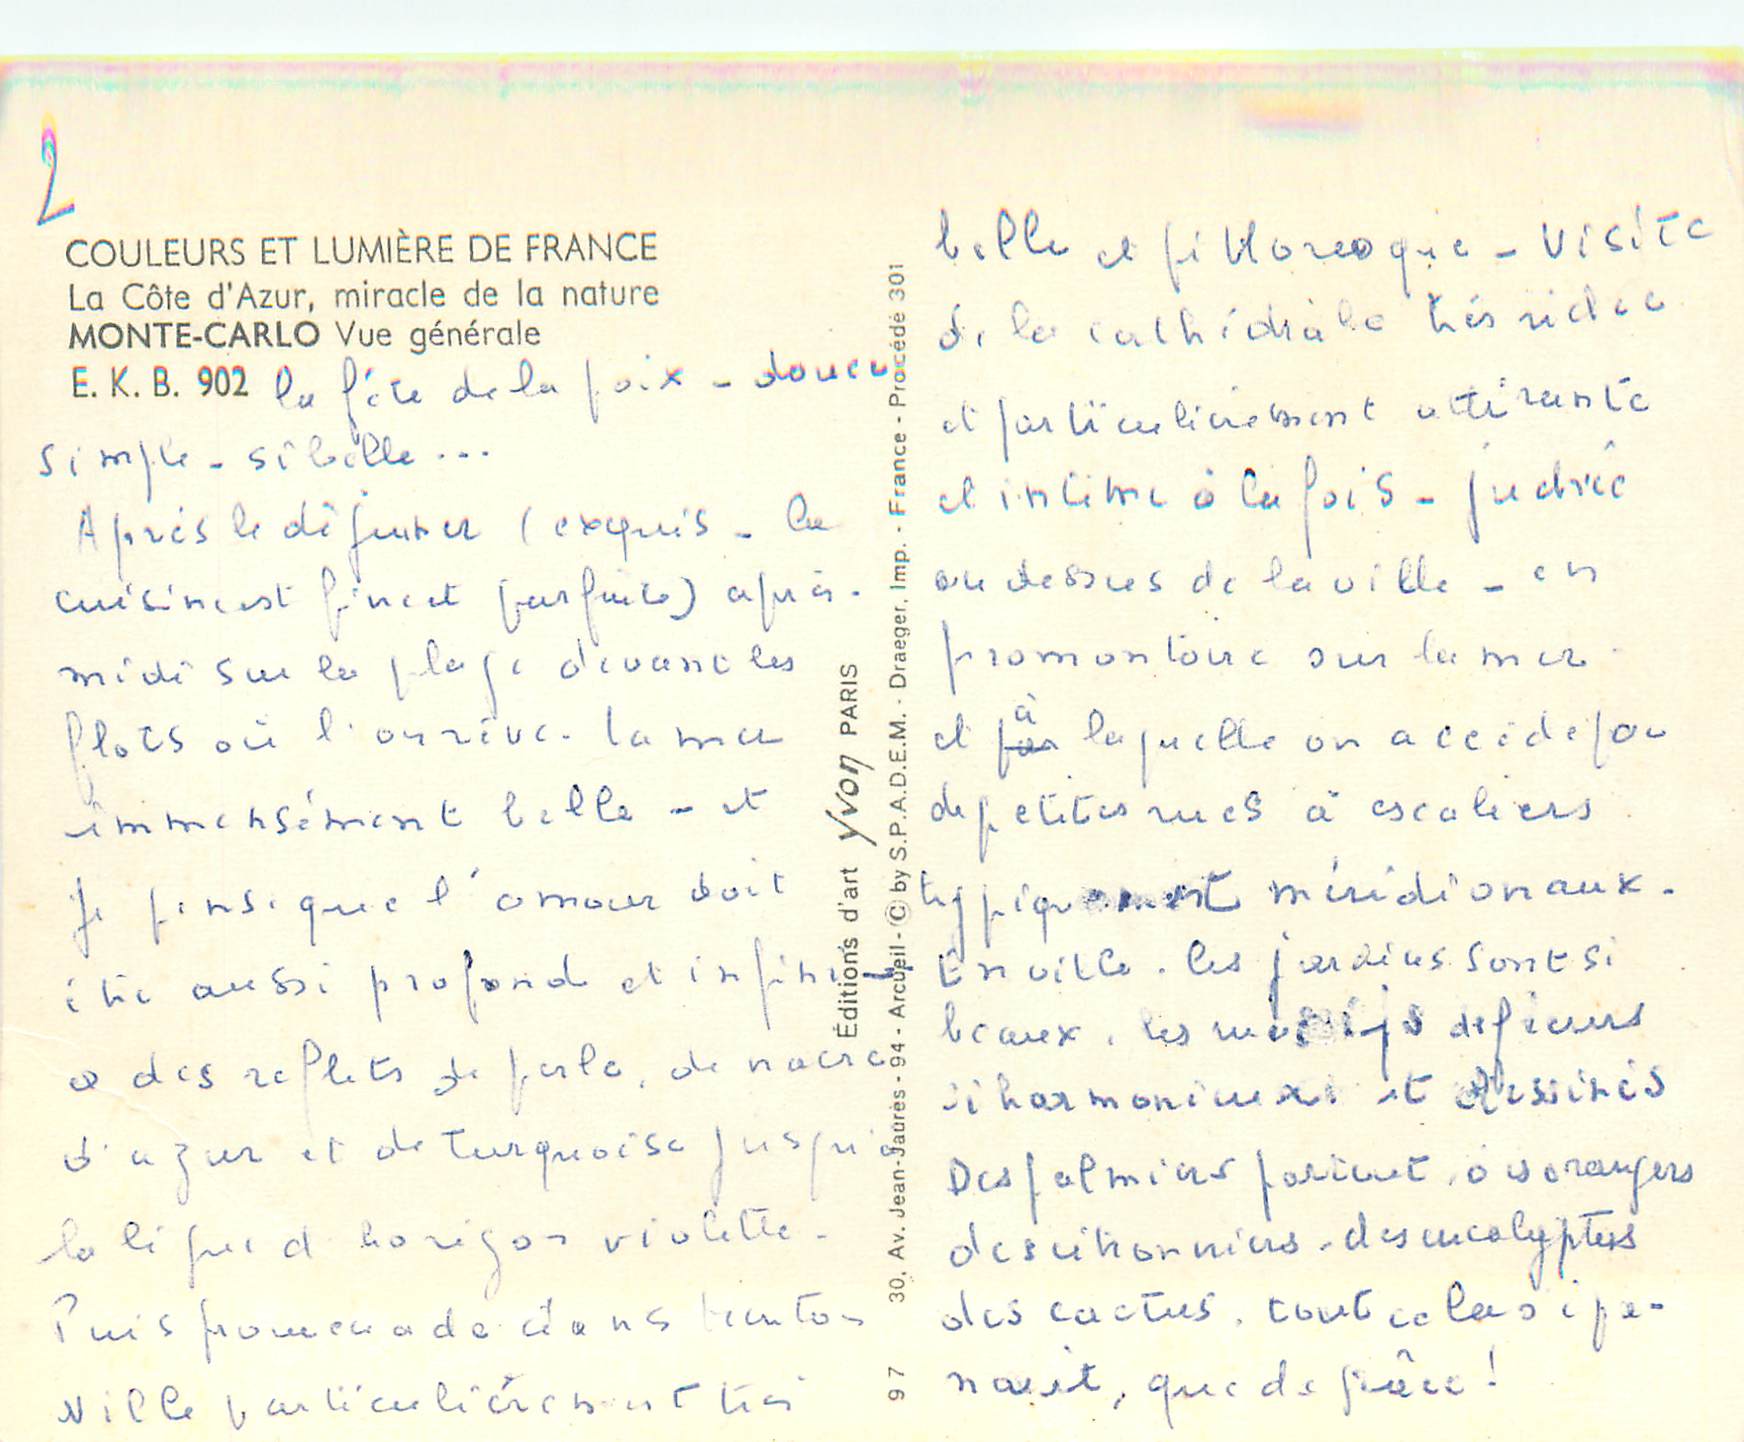 2
COULEURS ET LUMIÈRE DE FRANCE
La Côte d'Azur, miracle de la nature
MONTE-CARLO Vue générale
E. K. B. 902
la fête de la paix - douce
simple - si belle ...
Après le déjeuner (exquis - la
cuisine est fine et parfaite) après-
midi sur la plage devant les
flots où l'on rêve. la mer
immensément belle - et
je pense que l'amour doit
être aussi profond et infini
a des reflets de perle, de nacre
d'azur et de turquoise jusqu'à
la ligne d'horizon violette.
Puis promenade dans Menton
ville particulièrement très
belle et pittoresque - visite
de la cathédrale très
et particulièrement attirante
et intime à la fois - juchée
au dessus de la ville - en
promontoire sur la mer
et à laquelle on accède par
de petites rues à escaliers
typiquement méridionaux.
En ville. les jardins sont si
beaux, les massifs de fleurs
si harmonieux et dessinés
Des palmiers partout, des orangers
des citronniers - des eucalyptus
des cactus, tout cela si
que de grâce !
Éditions d'art Yvon PARIS
30, Av. Jean-Jaurès - 94 - Arcueil - © by S.P.A.D.E.M. - Draeger, Imp. - France - Procédé 301
97